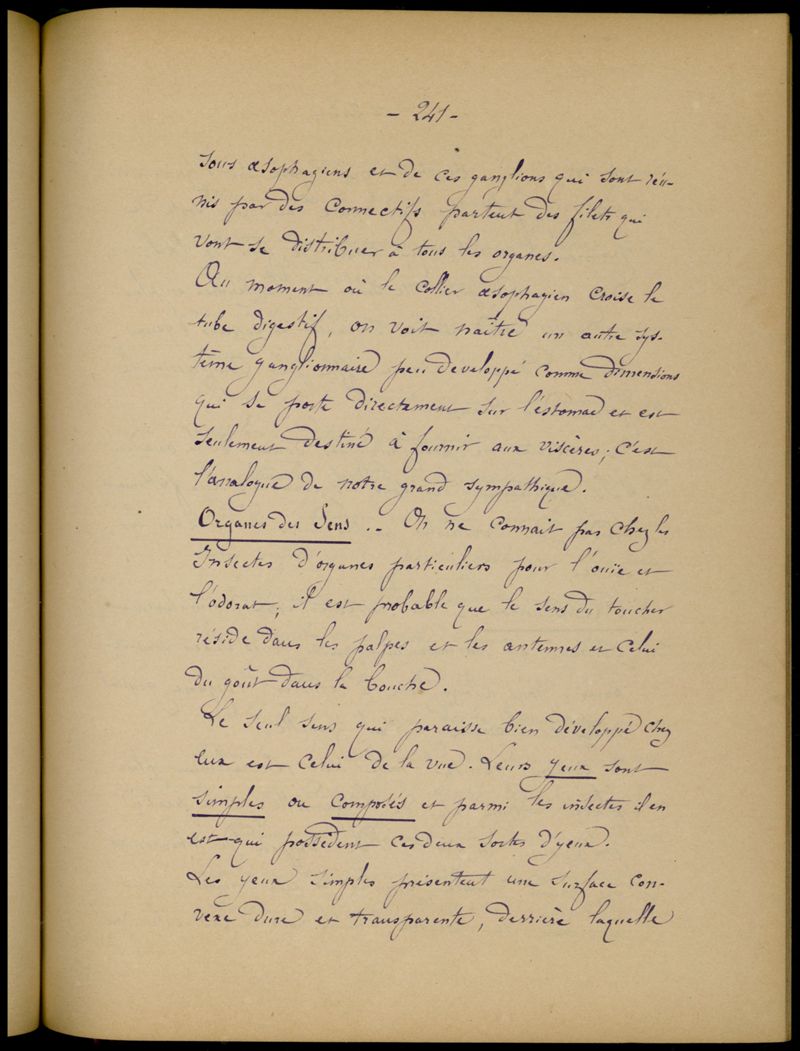 - 241 -
sous œsophagiens et de ces ganglions qui sont réu-
nis par des connectifs partent des filets qui
vont se distribuer à tous les organes.
Au moment où le collier œsophagien croise le
tube digestif, on voit naître un autre sys-
tème ganglionnaire peu développé comme dimensions
qui se porte directement sur l'éstomac et est
seulement destiné à fournir aux viscères ; c'est
l'analogue de notre grand sympathique.
Organes des Sens .- On ne connait pas chez les
Insectes d'organes particuliers pour l'ouïe et
l'odorat ; il est probable que le sens du toucher
réside dans les palpes et les antennes et celui
du goût dans la bouche.
Le seul sens qui paraisse bien développé chez
eux est celui de la vue. Leurs yeux sont
simples ou composés et parmi les insectes il en
est qui possèdent ces deux sortes d'yeux.
Les yeux simples présentent une surface con-
vexe dure et transparente, derrière laquelle